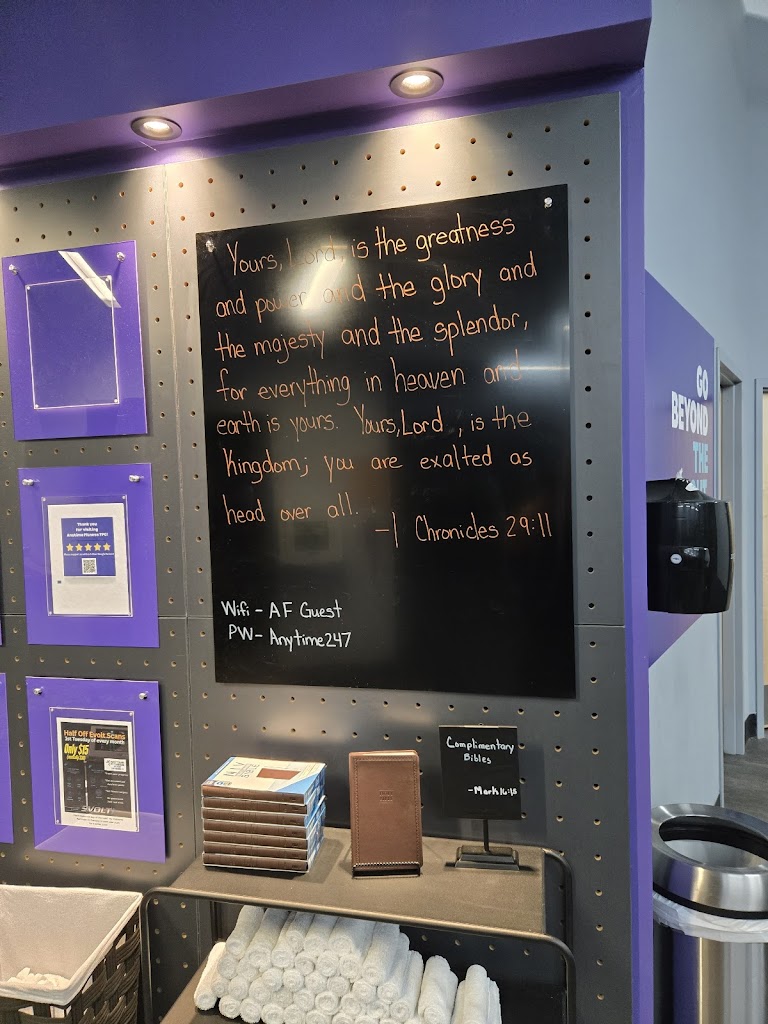 Yours, Lord, is the greatness
and power and the glory and
the majesty and the splendor,
for everything in heaven and
earth is yours. Yours, Lord, is the
Kingdom; you are exalted as
head over all.
-1 Chronicles 29:11
Wifi - AF Guest
PW- Anytime247
Thank you
for visiting
Anytime Fitness TPS!
Half Off Evolt Scans
1st Tuesday of every month
Only $15
EVOLT
Complimentary
Bibles
-Mark 16:15
GO
BEYOND
THE